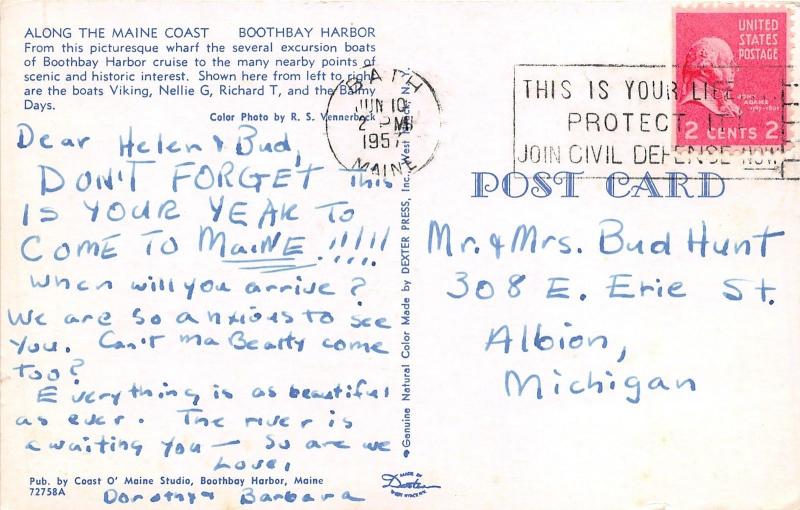 ALONG THE MAINE COAST BOOTHBAY HARBOR
From this picturesque wharf the several excursion boats
of Boothbay Harbor cruise to the many nearby points of
scenic and historic interest. Shown here from left to right
are the boats Viking, Nellie G, Richard T, and the Balmy
Days.
Color Photo by R. S. Vennerbeck
Dear Helen & Bud,
DON'T FORGET This
IS YOUR YEAR TO
COME TO MAINE!!!!!
When will you arrive?
We are so anxious to see
you. Can't Ma Beatty come
too?
Everything is as beautiful
as ever. The river is
awaiting you — So are we
Love,
Dorothy & Barbara
Pub. by Coast O' Maine Studio, Boothbay Harbor, Maine
72758A
Genuine Natural Color Made by DEXTER PRESS, Inc., West Nyack, N.Y.
MADE BY
Dexter
WEST NYACK, N.Y.
BATH
JUN 10
2 PM
1957
MAINE
THIS IS YOUR LIFE
PROTECT IT
JOIN CIVIL DEFENSE NOW
UNITED
STATES
POSTAGE
JOHN
ADAMS
1797-1801
2 CENTS 2
POST CARD
Mr. & Mrs. Bud Hunt
308 E. Erie St.
Albion,
Michigan